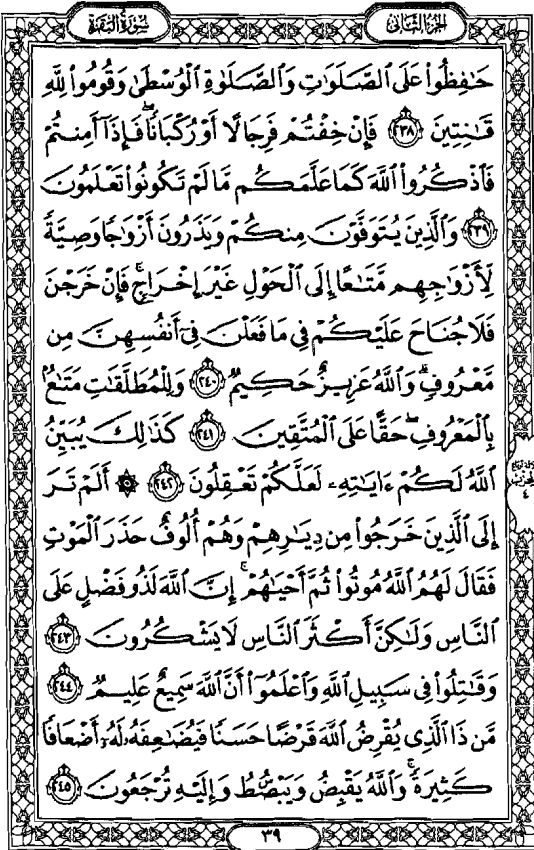 سُورَةُ البَقَرَةِ
الجُزْءُ الثَّانِي
حَٰفِظُوا۟ عَلَى ٱلصَّلَوَٰتِ وَٱلصَّلَوٰةِ ٱلْوُسْطَىٰ وَقُومُوا۟ لِلَّهِ
قَٰنِتِينَ ٢٣٨ فَإِنْ خِفْتُمْ فَرِجَالًا أَوْ رُكْبَانًا ۖ فَإِذَآ أَمِنتُمْ
فَٱذْكُرُوا۟ ٱللَّهَ كَمَا عَلَّمَكُم مَّا لَمْ تَكُونُوا۟ تَعْلَمُونَ
٢٣٩ وَٱلَّذِينَ يُتَوَفَّوْنَ مِنكُمْ وَيَذَرُونَ أَزْوَٰجًا وَصِيَّةً
لِّأَزْوَٰجِهِم مَّتَٰعًا إِلَى ٱلْحَوْلِ غَيْرَ إِخْرَاجٍ ۚ فَإِنْ خَرَجْنَ
فَلَا جُنَاحَ عَلَيْكُمْ فِى مَا فَعَلْنَ فِىٓ أَنفُسِهِنَّ مِن
مَّعْرُوفٍ ۗ وَٱللَّهُ عَزِيزٌ حَكِيمٌ ٢٤٠ وَلِلْمُطَلَّقَٰتِ مَتَٰعٌۢ
بِٱلْمَعْرُوفِ ۖ حَقًّا عَلَى ٱلْمُتَّقِينَ ٢٤١ كَذَٰلِكَ يُبَيِّنُ
ٱللَّهُ لَكُمْ ءَايَٰتِهِۦ لَعَلَّكُمْ تَعْقِلُونَ ٢٤٢ ۞ أَلَمْ تَرَ
إِلَى ٱلَّذِينَ خَرَجُوا۟ مِن دِيَٰرِهِمْ وَهُمْ أُلُوفٌ حَذَرَ ٱلْمَوْتِ
فَقَالَ لَهُمُ ٱللَّهُ مُوتُوا۟ ثُمَّ أَحْيَٰهُمْ ۚ إِنَّ ٱللَّهَ لَذُو فَضْلٍ عَلَى
ٱلنَّاسِ وَلَٰكِنَّ أَكْثَرَ ٱلنَّاسِ لَا يَشْكُرُونَ ٢٤٣
وَقَٰتِلُوا۟ فِى سَبِيلِ ٱللَّهِ وَٱعْلَمُوٓا۟ أَنَّ ٱللَّهَ سَمِيعٌ عَلِيمٌ ٢٤٤
مَّن ذَا ٱلَّذِى يُقْرِضُ ٱللَّهَ قَرْضًا حَسَنًا فَيُضَٰعِفَهُۥ لَهُۥٓ أَضْعَافًا
كَثِيرَةً ۚ وَٱللَّهُ يَقْبِضُ وَيَبْصُۜطُ وَإِلَيْهِ تُرْجَعُونَ ٢٤٥
٣٩